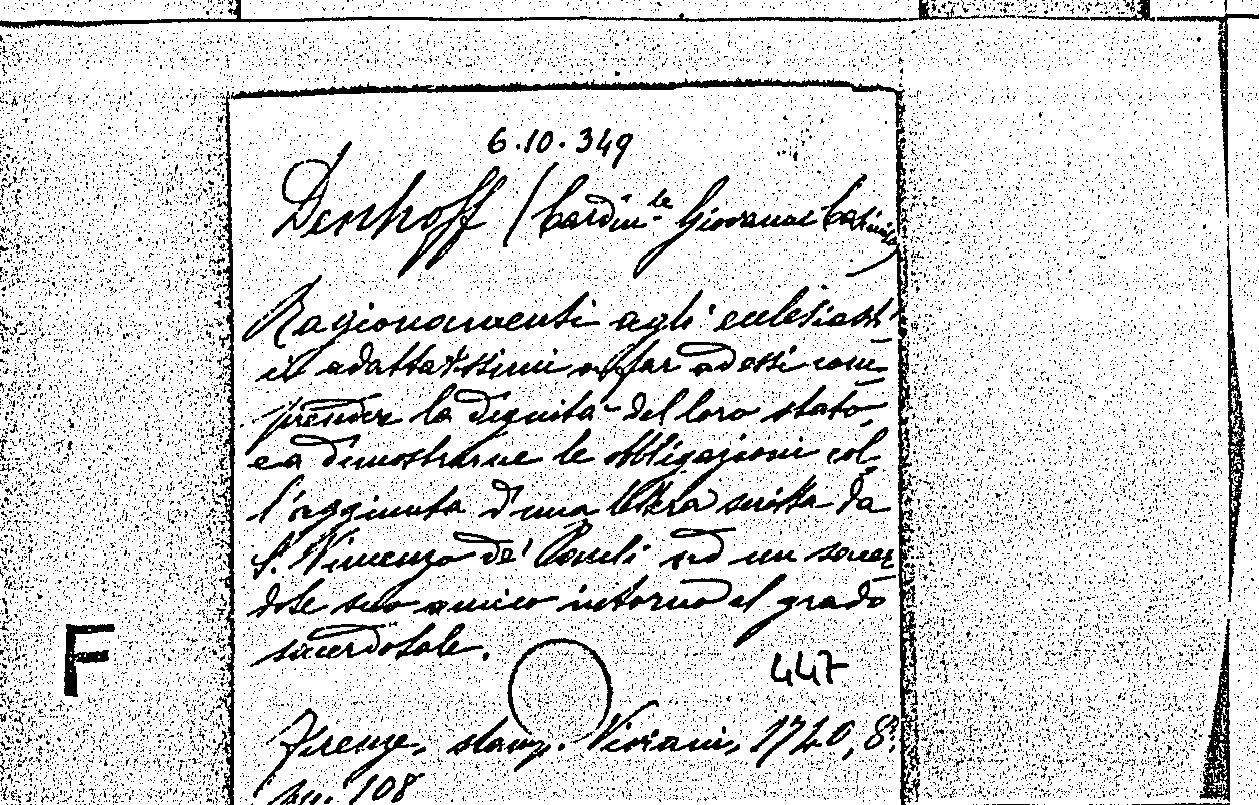 6.10.349
Denhoff (Cardin.le Giovanni Casimiro)
Ragionamenti agli ecclesiast
ici adattatissimi a far ad essi com
prender la dignità del loro stato,
e a dimostrarne le obbligazioni col
l'aggiunta d'una lettera scritta da
S. Vincenzo de' Paoli ad un sacer
dote suo amico intorno al grado
sacerdotale.
447
F
Firenze, stamp. Viviani, 1740, 8.°
pp. 108